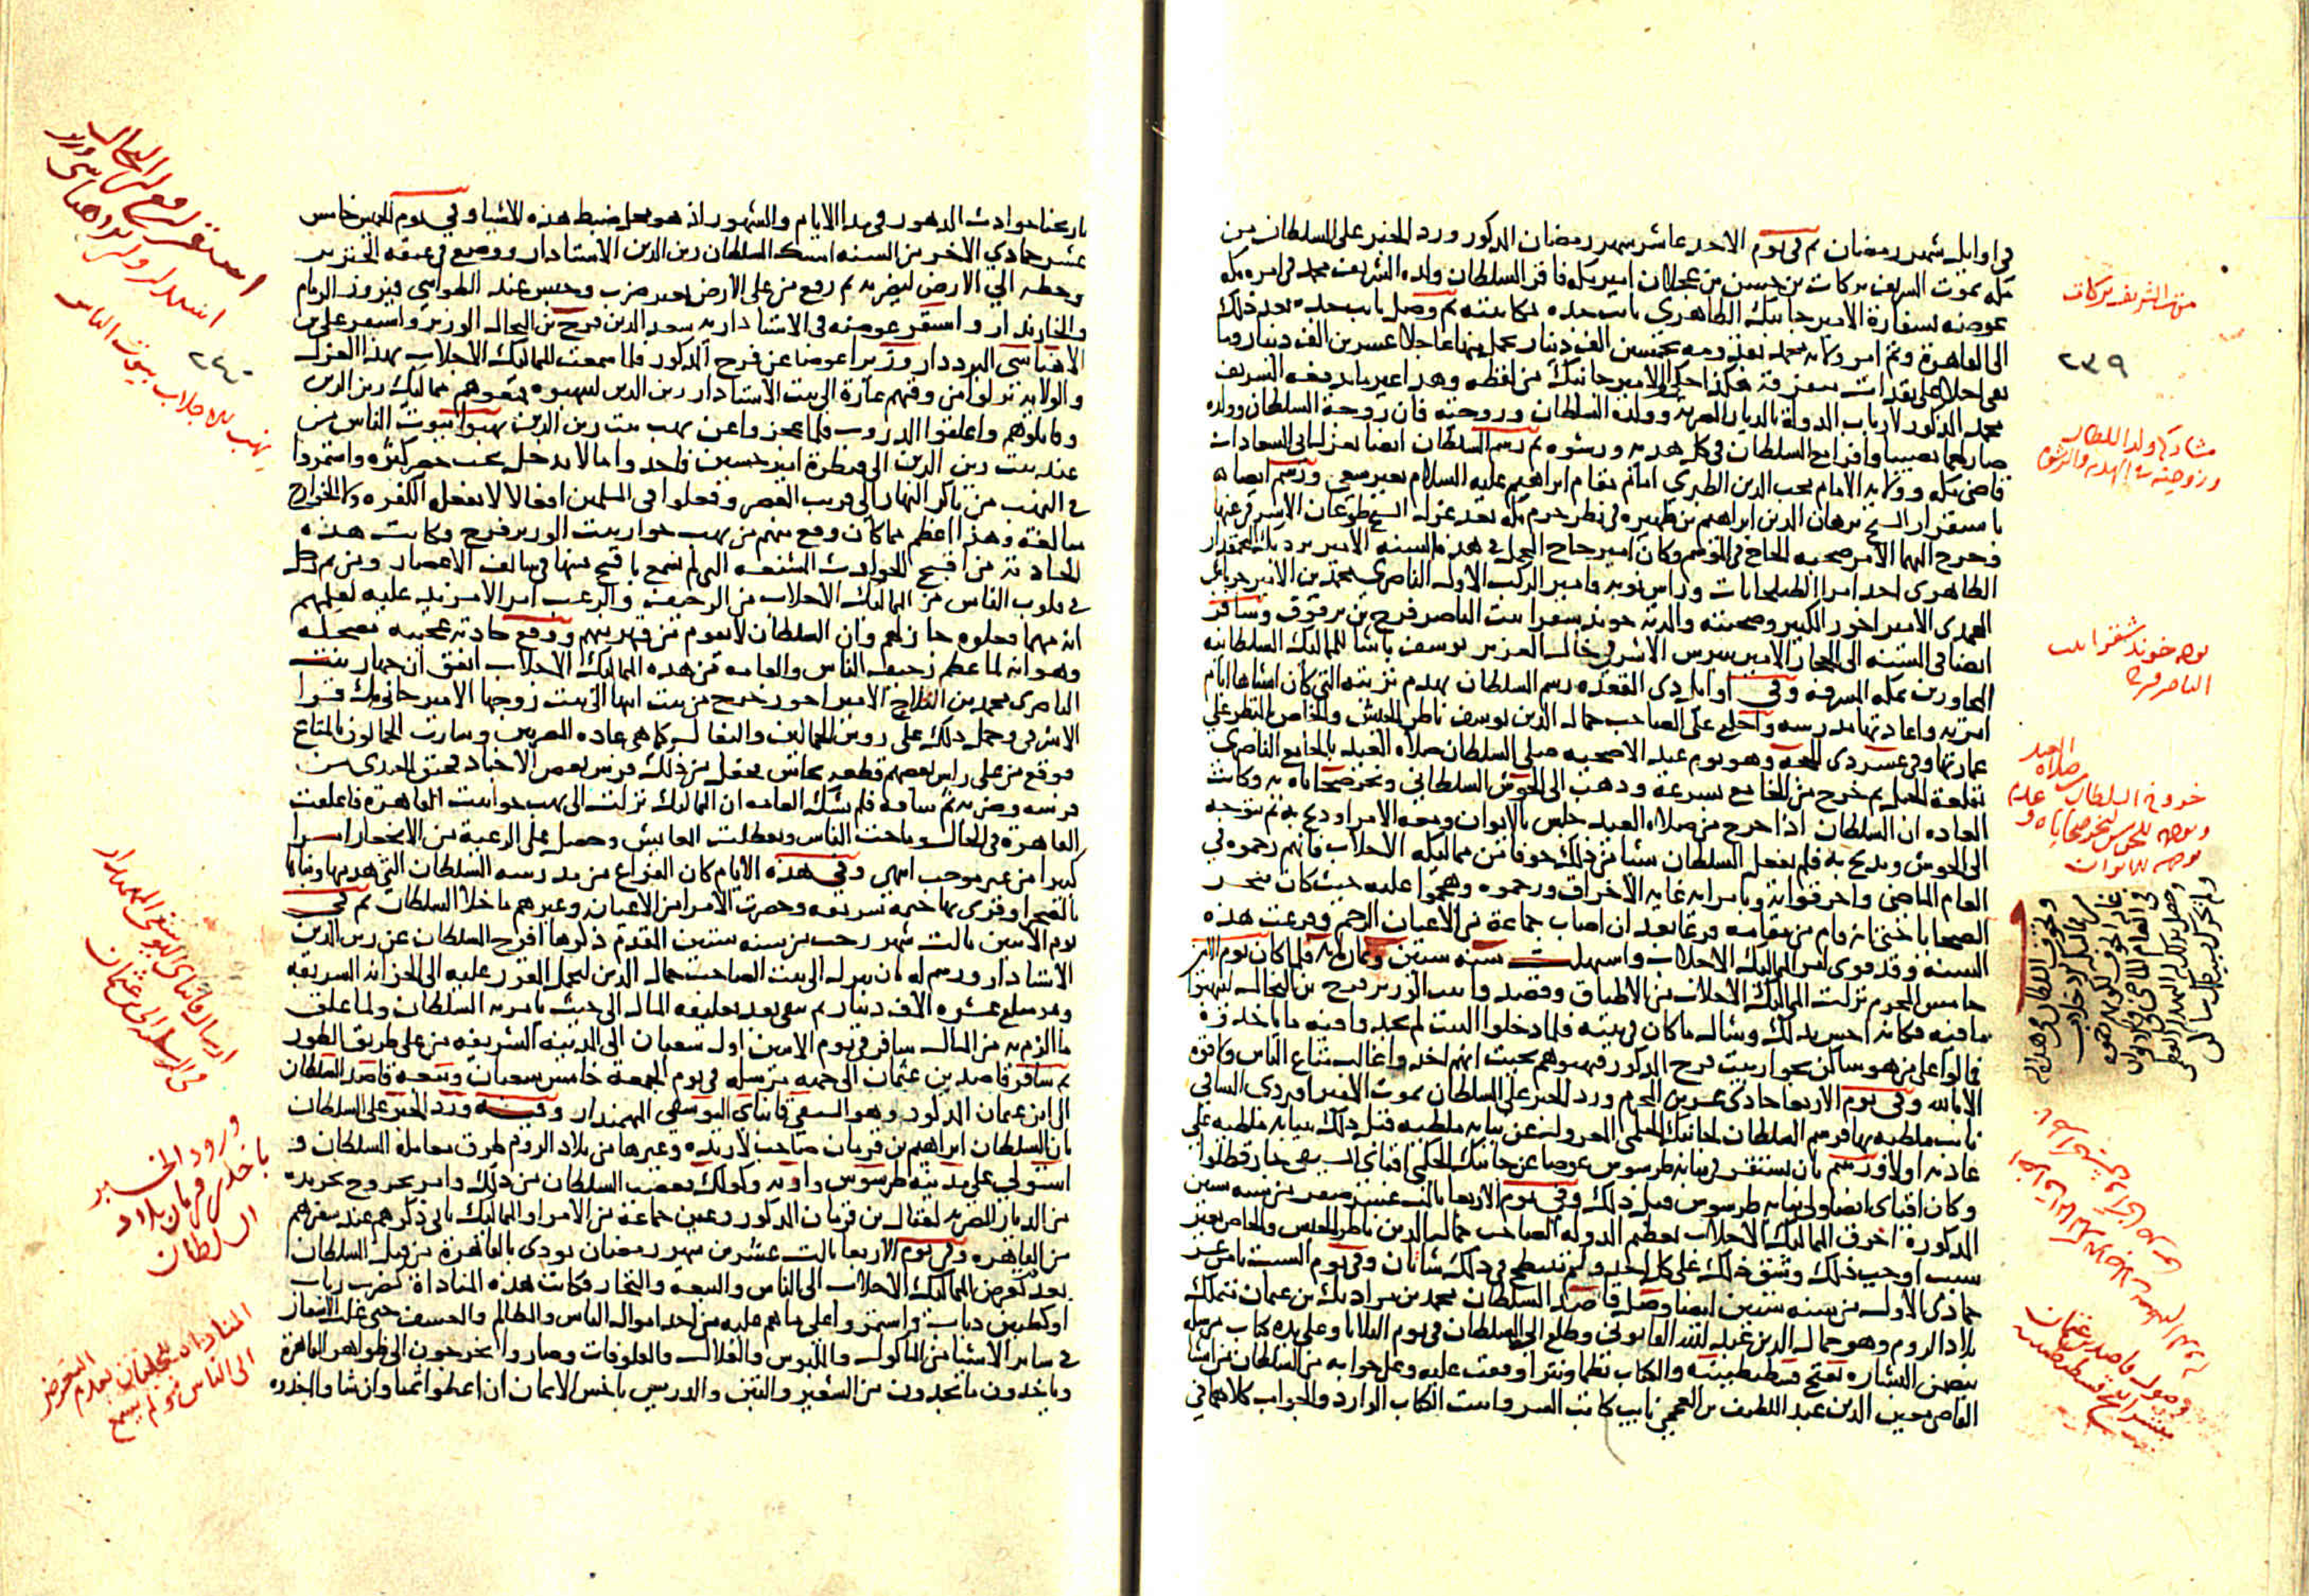 في اوايل شهر رمضان ثم في يوم الاحد عاشر شهر رمضان المذكور ورد الخبر على السلطان من
مكه بموت الشريف بركات بن حسن بن عجلان امير مكه فاقر السلطان ولده الشريف محمد في امره مكه
عوضه بسفارة الامير جانبك الظاهري نايب جده مكاتبته ثم وصل نايب جده بعد ذلك
الى القاهرة وتم امر ولايه محمد بخمسين الف دينار يحمل منها عاجلا عشرين الف دينار وما
بقى احلا على نقدات متفرقة هكذا احكى لي الامير جانبك من لفظه وهذا غير ما يدفعه الشريف
محمد المذكور لارباب الدولة بالديار المصريه وولد السلطان وزوجته فان زوجة السلطان وولده
صار لهما نصيبا وافرا مع السلطان في كل هديه ورشوه ثم رسم السلطان ايضا لعزل ابي السعادات
قاضي مكه وولايه الامام محب الدين الطبري امام مقام ابراهيم عليه السلام بغير سعي ورسم ايضا
باستقرار الشيخ برهان الدين ابراهيم بن ظهيره في نظر حرم مكه بعد عزل الشيخ طوغان الاشرفي عنها
وخرج اليهما الامر صحبه الحاج في الموسم وكان امير حاج المحمل في هذه السنه الامير بردبك البجمقدار
الظاهري احد امرا الطبلخانات وراس نوبه وامير الركب الاول الناصري محمد بن الامير جرباش
المحمدى الامير اخور الكبير وصحبته والدته خوند شقرا بنت الناصر فرج بن برقوق وسافر
ايضا في السنه الى الحجاز الامير بيبرس الاشرفي خال العزيز يوسف باشا للمماليك السلطانيه
المجاورين بمكه المشرفه وفي اوايل ذي القعده رسم السلطان بهدم تربته التي كان انشاها ايام
امرته واعادتها مدرسه واخلع على الصاحب جمال الدين يوسف ناظر الجيش والخاص بالنظر على
عمارتها وفي عشر ذي الحجه وهو يوم عيد الاضحيه صلى السلطان صلاة العيد بالجامع الناصري
بقلعة الجبل ثم خرج من الجامع بسرعة وذهب الى الحوش السلطاني ونحر ضحاياه به وكانت
العاده ان السلطان اذا خرج من صلاه العيد جلس بالايوان ومعه الامرا وذبح به ثم يتوجه
الى الحوش ويذبح به فلم يفعل السلطان شيا من ذلك خوفا من مماليكه الاجلاب فانهم رجموه في
العام الماضي واخرقوا به وبامرايه غايه الاخراق ورجموه وهجموا عليه حيث كان ينحر
الضحايا حتى انه قام من مقامه فزعا بعد ان اصاب جماعة من الاعيان الرجم وفرغت هذه
السنه وقد قوى امر المماليك الاجلاب واستهلت سنه ستين وثمان مايه فلما كان يوم الاثنين
خامس المحرم نزلت المماليك الاجلاب من الاطباق وقصدوا بيت الوزير فرج بن النحال لينهبوا
ما فيه فكانه احس بذلك وشال ما كان في بيته فلما دخلوا البيت لم يجدوا فيه ما ياخذوه
فمالوا على من هو ساكن بجوار بيت فرج المذكور فنهبوهم بحيث انهم اخذوا غالب متاع الناس ولا قوه
الا بالله وفي يوم الاربعا حادي عشرين المحرم ورد الخبر على السلطان بموت الامير اقبردى الساقي
نايب ملطيه بها فرسم السلطان لجانبك الجكمي المعزول عن نيابه ملطيه قبل ذلك بنيابه ملطيه على
عادته اولا ورسم بان يستقر في نيابه طرسوس عوضا عن جانبك الجكمي اقباى السيفي جارقطلوا
وكان اقباى ايضا ولي نيابه طرسوس قبل ذلك وفي يوم الاربعا ثالث عشر صفر من سنه ستين
المذكورة اخرق المماليك الاجلاب بعظيم الدوله الصاحب جمال الدين ناظر الجيش والخاص بغير
سبب اوجب ذلك وشق ذلك على كل احد ولم ينتطح في ذلك شاتان وفي يوم السبت ثامن عشر
جمادى الاول من سنه ستين ايضا وصل قاصد السلطان محمد بن مراد بك بن عثمان متملك
بلاد الروم وهو جمال الدين عبد الله القابوني وطلع الى السلطان في يوم الثلاثا وعلى يده كتاب مرسله
يتضمن البشاره بفتح قسطنطينيه والكتاب نظما ونثرا وقعت عليه وعلى جوابه من السلطان من انشا
القاضي معين الدين عبد اللطيف بن العجمي نايب كاتب السر واثبت الكتاب الوارد والجواب كلاهما في
موت الشريف بركات
٢٣٩
مشاركه ولد السلطان
وزوجته في الهديه والرشوه
توجه خوند شقرا بنت
الناصر فرج
تاريخنا حوادث الدهور في مدا الايام والشهور اذ هو محل ضبط هذه الاشيا وفي يوم الخميس خامس
عشر جمادي الاخر من السنه امسك السلطان زين الدين الاستادار ووضع في عنقه الجنزير
وحطه الي الارض ليضربه ثم رفع من على الارض بغير ضرب وحبس عند الطواشي فيروز الزمام
والخازندار واستقر عوضه في الاستاداريه سعد الدين فرج بن النحال الوزير واستقر علي بن
الاهناسي البرددار وزيرا عوضا عن فرج المذكور فلما سمعت المماليك الاجلاب بهذا العزل
والولايه نزلوا من وقتهم غارة الى بيت الاستادار زين الدين لينهبوه فمنعوهم مماليك زين الدين
وقاتلوهم واغلقوا الدروب فلما عجزوا عن نهب بيت زين الدين نهبوا بيوت الناس من
عند بيت زين الدين الى قنطرة امير حسين فاخذوا ما لا يدخل تحت حصر كثره واستمروا
في النهب من باكر النهار الى قريب العصر وفعلوا في المسلمين افعالا لا يفعله الكفره ولا الخوارج
مبالغة وهذا اعظم مما كان وقع منهم من نهب جوار بيت الوزير فرج وكانت هذه
الحادثه من اقبح الحوادث الشنعه التي لم نسمع باقبح منها في سالف الاعصار ومن ثم دخل
في قلوب الناس من المماليك الاجلاب من الرجيف والرعب امرا لامزيد عليه لعلمهم
انه مهما فعلوه جاز لهم وان السلطان لا يقوم من قهر منهم ووقع حادثه عجيبه مضحكه
وهو انه لما عظم رجيف الناس والعامه من هذه المماليك الاجلاب اتفق ان جهاز بنت
الناصري محمد بن الثلاج الامير اخور خرج من بيت ابيها الى بيت زوجها الامير جاني بك قرا
الاشرفي وحمل ذلك على روس الحمالين والبغال كما هي عاده المصريين وسارت الحمالون بالمتاع
فوقع من على راس بعضهم قطعه نحاس فجفل من ذلك فرس بعض الاجناد فحنق الجندي من
فرسه وضربه ثم ساقه فلم تشك العامه ان المماليك نزلت الى نهب حوانيت القاهرة فاغلقت
القاهرة في الحال وماجت الناس وتعطلت المعايش وحصل على الرعية من الانجفاز امرا
كبيرا من غير موجب انتهى وفي هذه الايام كان الفراغ من مدرسه السلطان التي هدمها وبناها
بالصحرا وقري بها ختمه شريفه وحضرت الامرا من الاعيان وغيرهم ما خلا السلطان ثم في
يوم الاثنين ثالث شهر رجب من سنه ستين المقدم ذكرها افرج السلطان عن زين الدين
الاستادار ورسم له بان ينزل الى بيت الصاحب جمال الدين ليحمل المقرر عليه الى الخزانه الشريفه
وهو مبلغ عشره الاف دينار ثم يبقى بعد تغليقه المال الى حيث يامر به السلطان ولما غلق
ما الزم به من المال سافر في يوم الاثنين اول شعبان الى المدينه الشريفه من على طريق الطور
ثم سافر قاصد بن عثمان الى جهه مرسله في يوم الجمعة خامس شعبان وتبعه قاصد السلطان
الى ابن عثمان المذكور وهو السيفي قانباى اليوسفي المهمندار وفيه ورد الخبر على السلطان
بان السلطان ابراهيم بن قرمان صاحب لارنده وغيرها من بلاد الروم طرق معاملة السلطان و
استولى على مدينه طرسوس وادنه وكولك فغضب السلطان من ذلك وامر بخروج تجريده
من الديار المصريه لقتال بن قرمان المذكور وعين جماعة من الامرا والمماليك ياتي ذكرهم عند سفرهم
من القاهره وفي يوم الاربعا ثالث عشرين شهر رمضان نودى بالقاهرة من قبل السلطان
بعدم تعرض المماليك الاجلاب الى الناس والبيعه والتجار فكانت هذه المناداة كضرب رباب
او كطنين ذباب واستمروا على ما هم عليه من اخد اموال الناس والظلم والعسف حتى غلت الاسعار
في ساير الاشيا من الماكول والملبوس والغلال والعلوفات وصاروا يخرجون الى ظواهر القاهرة
وياخدون ما يجدون من الشعير والتبن والدريس باخس الاثمان ان اعطوا ثمنا وان شا واخدوه
٢٤٠
نهب الاجلاب بيوت الناس
ورود الخبر
باخذ بن قرمان بلاد
السلطان